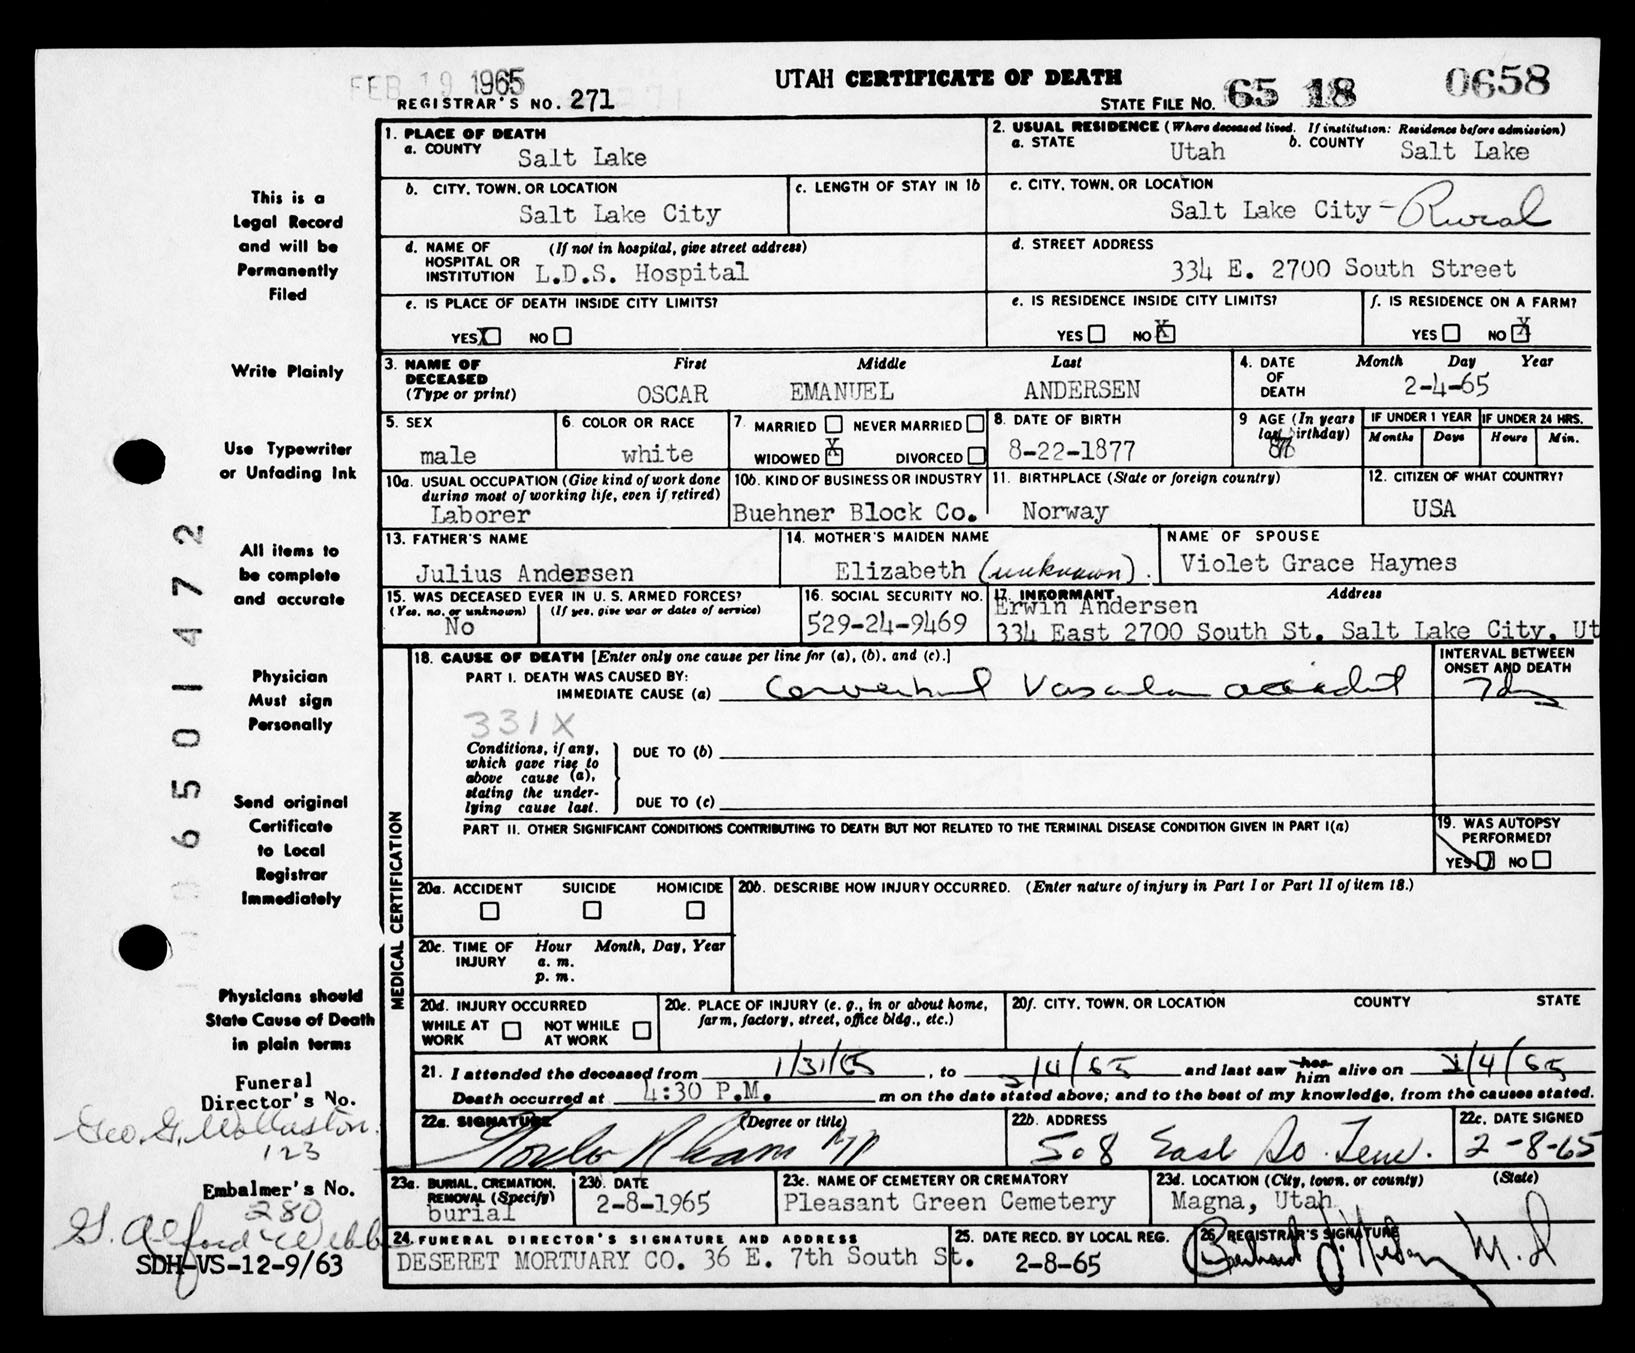 FEB 19 1965
UTAH CERTIFICATE OF DEATH
REGISTRAR'S NO. 271
STATE FILE NO. 65 18 0658
1. PLACE OF DEATH
a. COUNTY Salt Lake
2. USUAL RESIDENCE (Where deceased lived. If institution: Residence before admission)
a. STATE Utah b. COUNTY Salt Lake
b. CITY, TOWN, OR LOCATION
Salt Lake City
c. LENGTH OF STAY IN 1b
c. CITY, TOWN, OR LOCATION
Salt Lake City - Rural
d. NAME OF HOSPITAL OR INSTITUTION (If not in hospital, give street address)
L.D.S. Hospital
d. STREET ADDRESS
334 E. 2700 South Street
e. IS PLACE OF DEATH INSIDE CITY LIMITS?
YES X NO
e. IS RESIDENCE INSIDE CITY LIMITS?
YES NO X
f. IS RESIDENCE ON A FARM?
YES NO X
3. NAME OF DECEASED (Type or print)
First Middle Last
OSCAR EMANUEL ANDERSEN
4. DATE OF DEATH Month Day Year
2-4-65
5. SEX
male
6. COLOR OR RACE
white
7. MARRIED NEVER MARRIED
WIDOWED X DIVORCED
8. DATE OF BIRTH
8-22-1877
9 AGE (In years last birthday)
IF UNDER 1 YEAR IF UNDER 24 HRS.
Months Days Hours Min.
10a. USUAL OCCUPATION (Give kind of work done during most of working life, even if retired)
Laborer
10b. KIND OF BUSINESS OR INDUSTRY
Buehner Block Co.
11. BIRTHPLACE (State or foreign country)
Norway
12. CITIZEN OF WHAT COUNTRY?
USA
13. FATHER'S NAME
Julius Andersen
14. MOTHER'S MAIDEN NAME
Elizabeth (unknown).
NAME OF SPOUSE
Violet Grace Haynes
15. WAS DECEASED EVER IN U. S. ARMED FORCES?
(Yes, no, or unknown) (If yes, give war or dates of service)
No
16. SOCIAL SECURITY NO.
529-24-9469
17. INFORMANT Address
Erwin Andersen
334 East 2700 South St. Salt Lake City, Ut
MEDICAL CERTIFICATION
18. CAUSE OF DEATH [Enter only one cause per line for (a), (b), and (c).]
PART I. DEATH WAS CAUSED BY:
IMMEDIATE CAUSE (a) Cerebral Vascular accident
INTERVAL BETWEEN ONSET AND DEATH
331X
Conditions, if any, which gave rise to above cause (a), stating the underlying cause last.
DUE TO (b)
DUE TO (c)
PART II. OTHER SIGNIFICANT CONDITIONS CONTRIBUTING TO DEATH BUT NOT RELATED TO THE TERMINAL DISEASE CONDITION GIVEN IN PART I(a)
19. WAS AUTOPSY PERFORMED?
YES NO
20a. ACCIDENT SUICIDE HOMICIDE
20b. DESCRIBE HOW INJURY OCCURRED. (Enter nature of injury in Part I or Part II of item 18.)
20c. TIME OF INJURY Hour Month, Day, Year
a. m.
p. m.
20d. INJURY OCCURRED
WHILE AT WORK NOT WHILE AT WORK
20e. PLACE OF INJURY (e. g., in or about home, farm, factory, street, office bldg., etc.)
20f. CITY, TOWN, OR LOCATION COUNTY STATE
21. I attended the deceased from 1/31/65, to 2/4/65 and last saw her him alive on 2/4/65
Death occurred at 4:30 P.M. m on the date stated above; and to the best of my knowledge, from the causes stated.
22a. SIGNATURE (Degree or title)
22b. ADDRESS
508 East So. Tem.
22c. DATE SIGNED
2-8-65
23a. BURIAL, CREMATION, REMOVAL (Specify)
burial
23b. DATE
2-8-1965
23c. NAME OF CEMETERY OR CREMATORY
Pleasant Green Cemetery
23d. LOCATION (City, town, or county) (State)
Magna, Utah
24. FUNERAL DIRECTOR'S SIGNATURE AND ADDRESS
DESERET MORTUARY CO. 36 E. 7th South St.
25. DATE RECD. BY LOCAL REG.
2-8-65
26. REGISTRAR'S SIGNATURE
M.D
This is a
Legal Record
and will be
Permanently
Filed
Write Plainly
Use Typewriter
or Unfading Ink
All items to
be complete
and accurate
Physician
Must sign
Personally
Send original
Certificate
to Local
Registrar
Immediately
Physicians should
State Cause of Death
in plain terms
Funeral
Director's No.
Geo. G. Wollaston.
123
Embalmer's No.
280
G. Alford Webb
SDH-VS-12-9/63
06501472